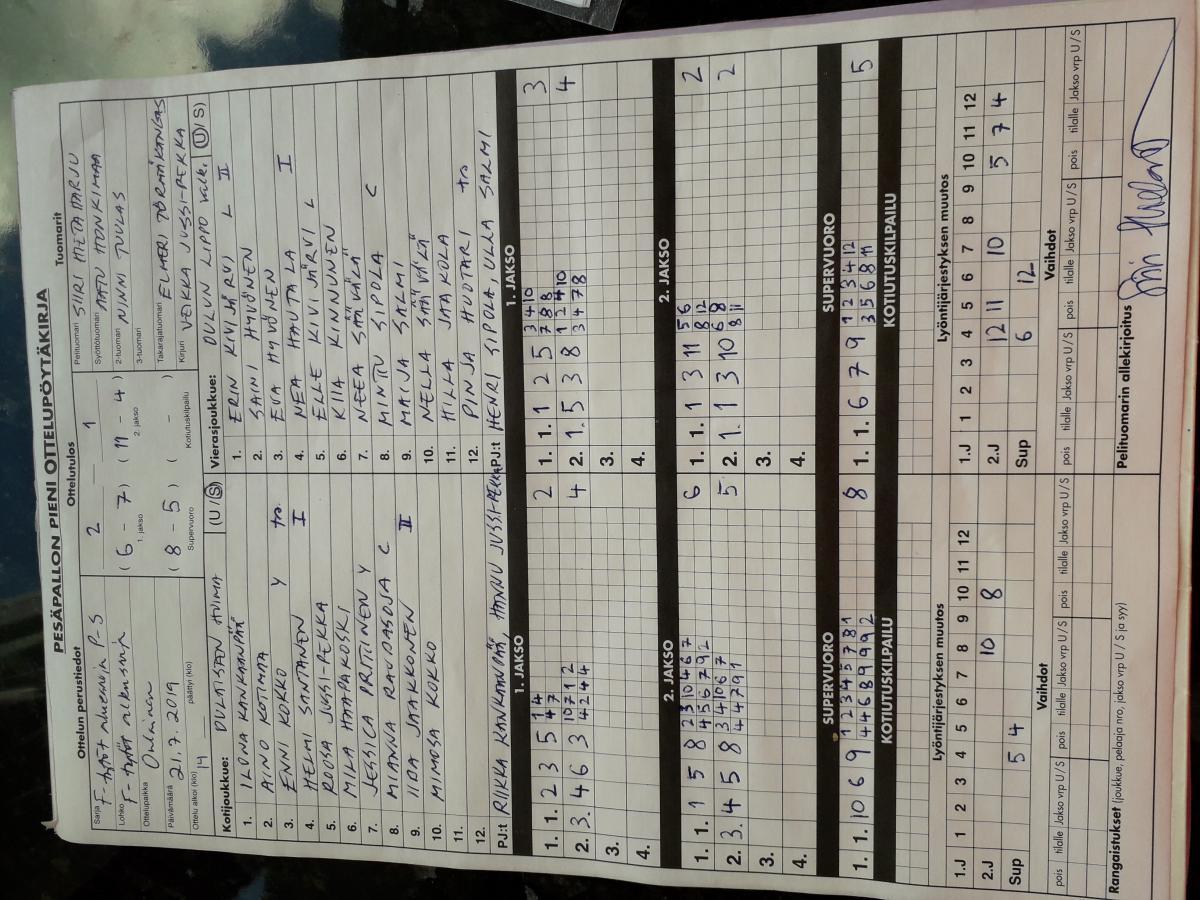 PESÄPALLON PIENI OTTELUPÖYTÄKIRJA
Ottelun perustiedot
Sarja F-tytöt alueleirin P-S
Lohko F-tytöt
Ottelupaikka
Päivämäärä 21.7.2019
Ottelu alkoi (klo) 14 päättyi (klo)
Ottelutulos
2 1
( 6 - 7 ) ( 11 - 4 )
1. jakso 2. jakso
( 8 - 5 ) ( - )
Supervuoro Kotiutuskilpailu
Tuomarit
Pelituomari SIIRI METATARJU
Syöttötuomari AATU HONKIMAA
2-tuomari NINNI TUULAS
3-tuomari
Takarajatuomari ELMERI TÖRMÄKANGAS
Kirjuri VEIKKA JUSSI-PEKKA
Kotijoukkue: OULAISTEN HUIMA (U/S)
1. ILONA KANKAANPÄÄ
2. AINO KOTIMAA
3. ENNI KOKKO Y tra
4. HELMI SANTANEN I
5. ROOSA JUSSI-PEKKA
6. MILA HAAPAKOSKI
7. JESSICA PRITTINEN Y
8. MIANNA RAUDASOJA C
9. IIDA JAAKKONEN II
10. MIMOSA KOKKO
11.
12.
PJ:t RIIKKA KANKAANPÄÄ, HANNU JUSSI-PEKKA
Vierasjoukkue: OULUN LIPPO valk. (U/S)
1. ERIN KIVIJÄRVI L II
2. SAINI HYVÖNEN
3. EVA HYVÖNEN
4. NEA HAUTALA I
5. ELLE KIVIJÄRVI L
6. KIIA KINNUNEN
7. NEEA SÄÄVÄLÄ
8. MINTU SIPOLA C
9. MAIJA SALMI
10. NELLA SÄÄVÄLÄ
11. HILLA JAAKOLA
12. PINJA HUOTARI tra
PJ:t HENRI SIPOLA, ULLA SALMI
1. JAKSO
1. 1. 2 3 5 1 4 2
4 7
2. 3. 4 6 3 10 7 1 2 4
4 2 4 4
3.
4.
1. JAKSO
1. 1. 1 2 5 3 4 10 3
7 8 8
2. 1. 5 3 8 1 2 4 10 4
3 4 7 8
3.
4.
2. JAKSO
1. 1. 1 5 8 2 3 10 4 6 7 6
4 5 6 7 9 2
2. 3. 4 5 8 3 4 10 6 7 5
4 4 7 9 1
3.
4.
2. JAKSO
1. 1. 1 3 11 5 6 2
8 12
2. 1. 1 3 10 6 8 2
8 11
3.
4.
SUPERVUORO
1. 1. 10 6 9 1 2 3 4 5 7 8 1 8
4 4 6 8 9 9 9 2
KOTIUTUSKILPAILU
SUPERVUORO
1. 1. 6 7 9 1 2 3 4 12 5
3 5 6 8 11
KOTIUTUSKILPAILU
Lyöntijärjestyksen muutos
1.J 1 2 3 4 5 6 7 8 9 10 11 12
2.J 10 8
Sup 5 4
Lyöntijärjestyksen muutos
1.J 1 2 3 4 5 6 7 8 9 10 11 12
2.J 12 11 10 5 7 4
Sup 6 12
Vaihdot
pois tilalle Jakso vrp U/S pois tilalle Jakso vrp U/S pois tilalle Jakso vrp U/S
Vaihdot
pois tilalle Jakso vrp U/S pois tilalle Jakso vrp U/S pois tilalle Jakso vrp U/S
Rangaistukset (joukkue, pelaaja nro, jakso vrp U / S ja syy)
Pelituomarin allekirjoitus